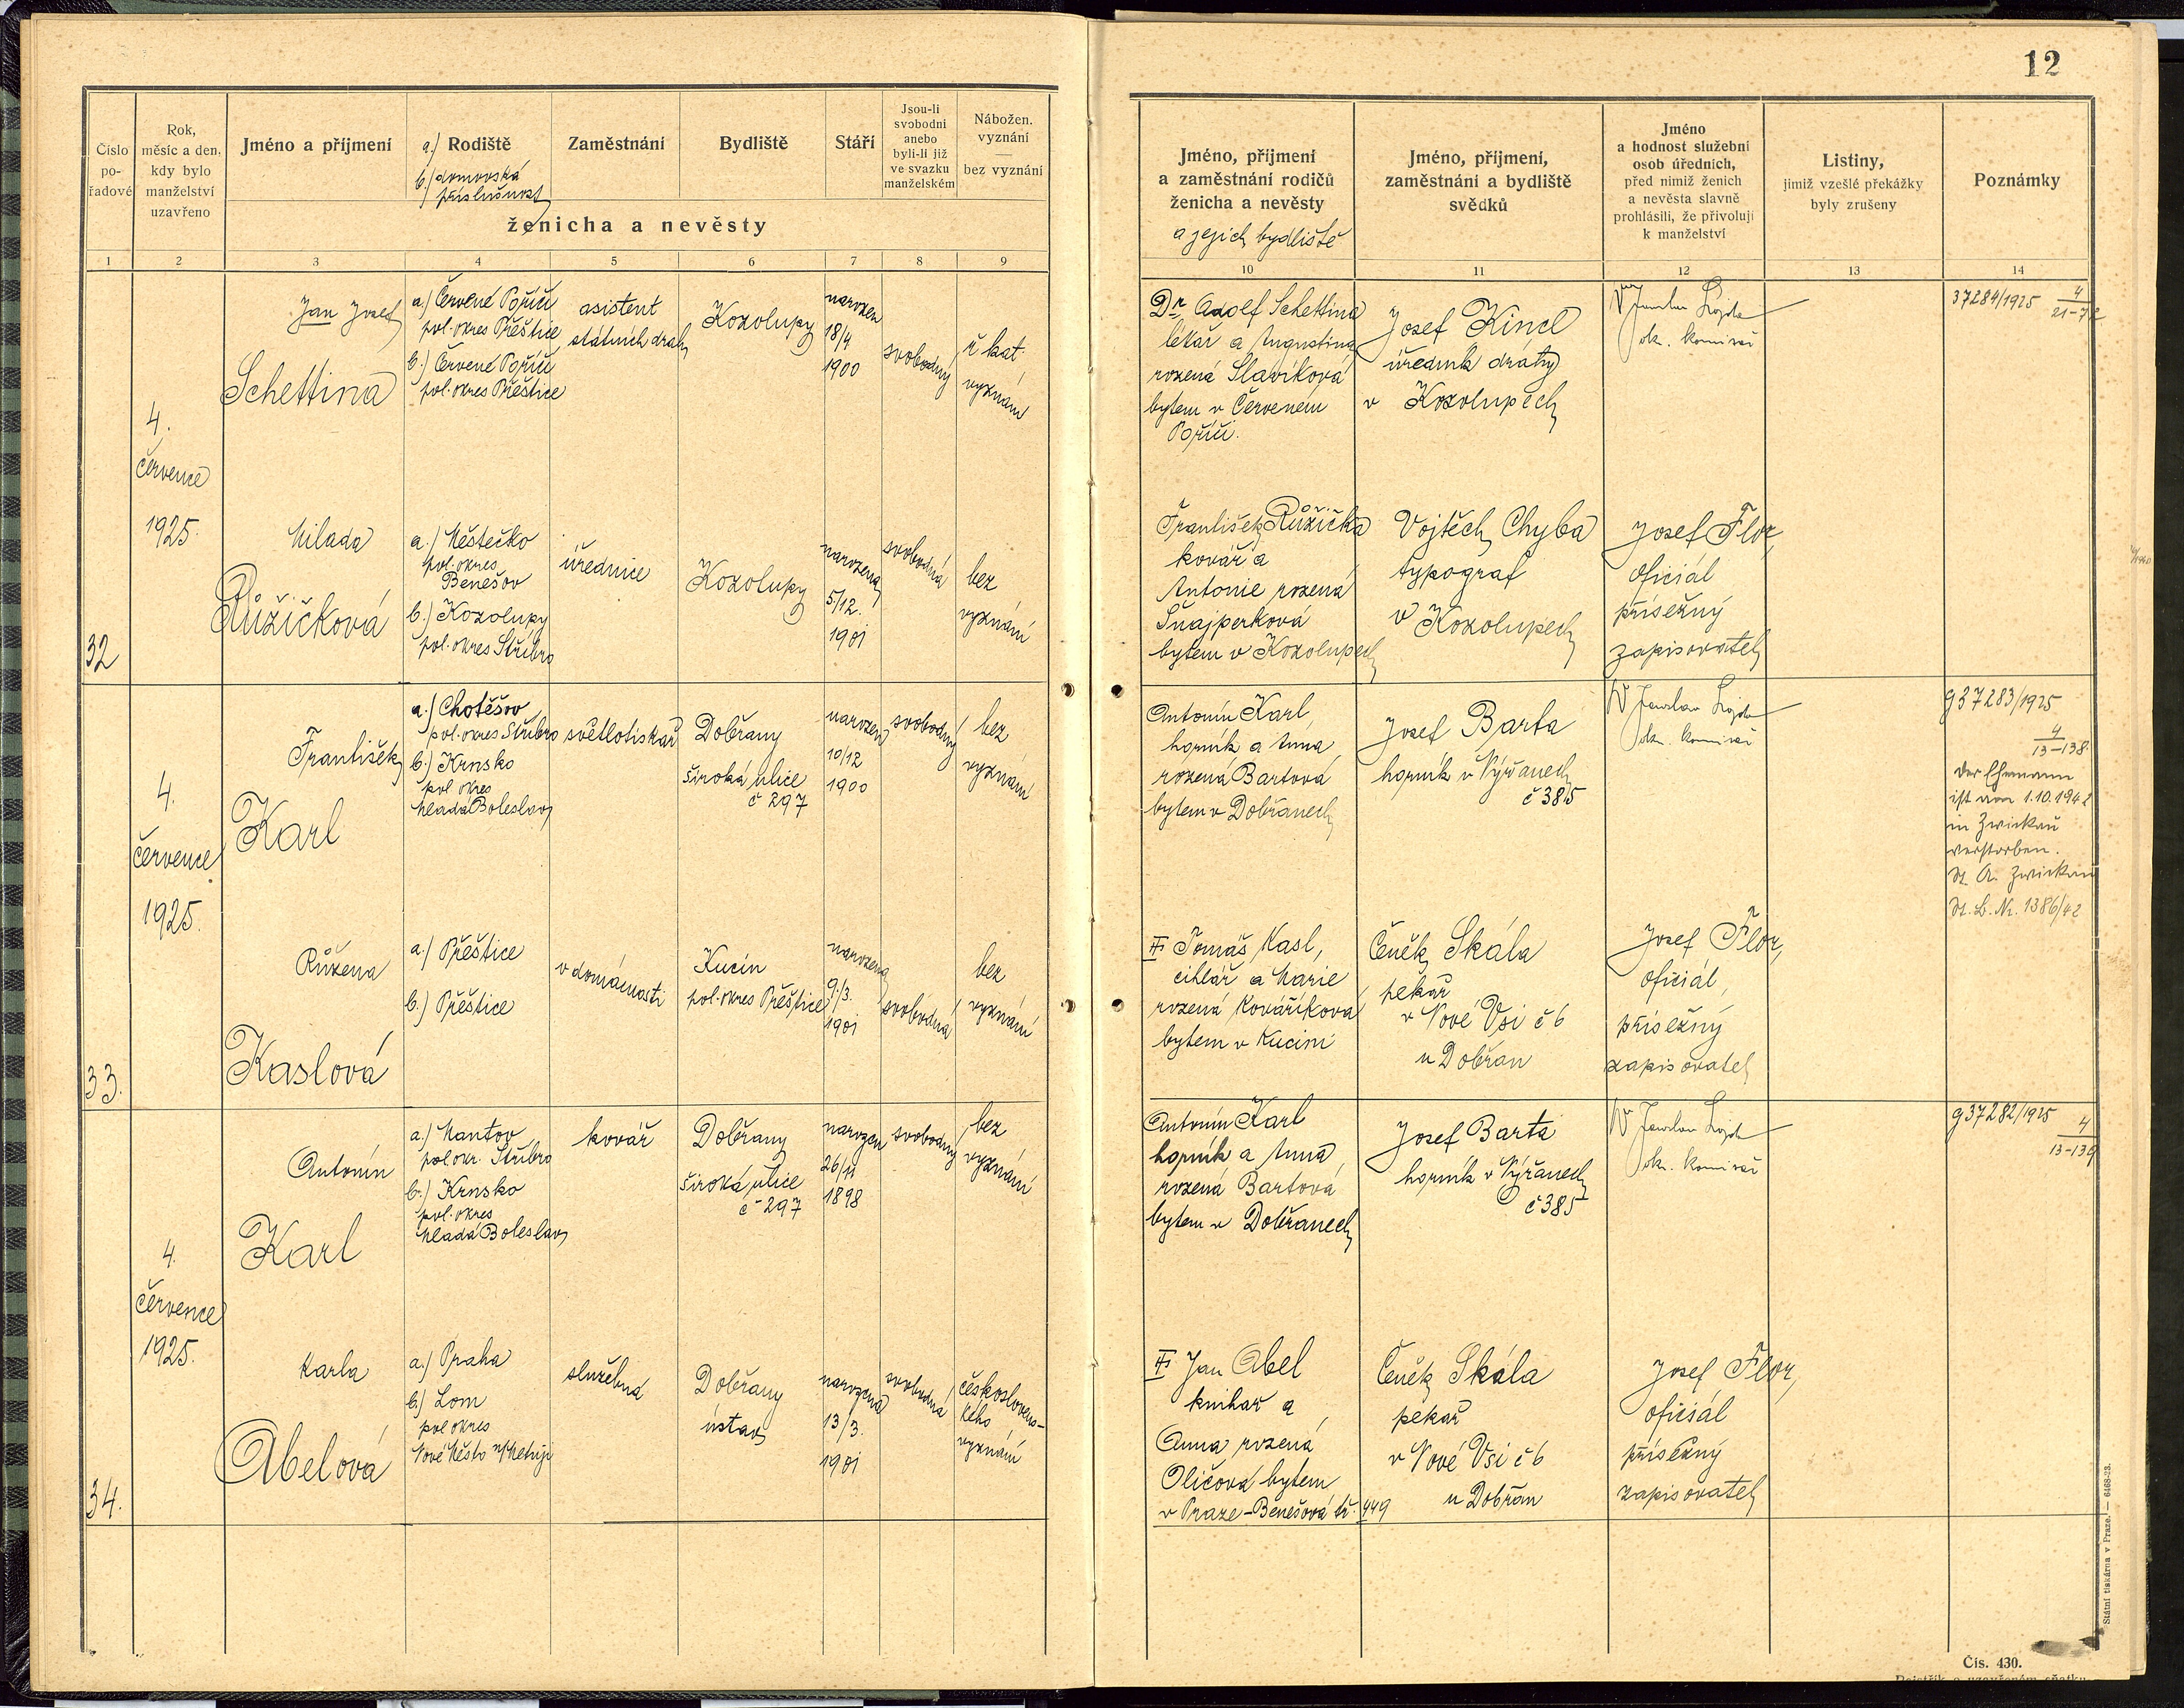 12
Číslo pořadové
Rok, měsíc a den, kdy bylo manželství uzavřeno
Jméno a příjmení
a.) Rodiště
b.) domovská příslušnost
Zaměstnání
Bydliště
Stáří
Jsou-li svobodni anebo byli-li již ve svazku manželském
Nábožen. vyznání — bez vyznání
ženicha a nevěsty
Jméno, příjmení a zaměstnání rodičů ženicha a nevěsty
a jejich bydliště
Jméno, příjmení, zaměstnání a bydliště svědků
Jméno a hodnost služební osob úředních, před nimiž ženich a nevěsta slavně prohlásili, že přivolují k manželství
Listiny, jimiž vzešlé překážky byly zrušeny
Poznámky
1 2 3 4 5 6 7 8 9 10 11 12 13 14
32
4.
července
1925.
Jan Josef
Schettina
a.) Červené Poříčí
pol. okres Přeštice
b.) Červené Poříčí
pol. okres Přeštice
asistent
státních drah
Kozolupy
narozen
18/4
1900
svobodný
ř. kat.
vyznání
Dr. Adolf Schettina
lékař a Augustina
rozená Slavíková
bytem v Červeném
Poříčí.
Josef Kincl
úředník dráhy
v Kozolupech
37284/1925
Milada
Růžičková
a.) Městečko
pol. okres
Benešov
b.) Kozolupy
pol. okres Stříbro
úřednice
Kozolupy
narozena
5/12.
1901
svobodná
bez
vyznání
František Růžička
kovář a
Antonie rozená
Šnajperková
bytem v Kozolupech
Vojtěch Chyba
typograf
v Kozolupech
Josef Flor,
oficiál
přísežný
zapisovatel
33.
4.
července
1925.
František
Karl
a.) Chotěšov
pol. okres Stříbro
b.) Krnsko
pol okres
Mladá Boleslav
světlotiskař
Dobřany
široká ulice
č 297
narozen
10/12
1900
svobodný
bez
vyznání
Antonín Karl,
horník a Anna
rozená Bartová
bytem v Dobřanech
Josef Barta
horník v Nýřanech
č 385
g 37283/1925
4
13-138.
Der Ehemann
ist am 1.10.1942
in Zwickau
verstorben.
St. A. Zwickau
St. B. Nr. 1386/42
Růžena
Kaslová
a.) Přeštice
b.) Přeštice
v domácnosti
Kucín
pol. okres Přeštice
narozena
9./3.
1901
svobodná
bez
vyznání
Tomáš Kasl,
cihlář a Marie
rozená Kovaříková
bytem v Kucíni
Čeněk Skála
pekař
v Nové Vsi č 6
u Dobřan
Josef Flor,
oficiál,
přísežný
zapisovatel
34.
4.
července
1925.
Antonín
Karl
a.) Mantov
pol okr. Stříbro
b.) Krnsko
pol. okres
Mladá Boleslav
kovář
Dobřany
široká ulice
č 297
narozen
26/11
1898
svobodný
bez
vyznání
Antonín Karl
horník a Anna
rozená Bartová
bytem v Dobřanech
Josef Barta
horník v Nýřanech
č 385
g 37282/1925
4
13-139
Karla
Abelová
a.) Praha
b.) Lom
pol okres
Nové Město n/Metují
služebná
Dobřany
ústav
narozená
13/3.
1901
svobodná
českosloven-
ského
vyznání
Jan Abel
knihař a
Anna rozená
Oličova bytem
v Praze-Benešová tř. 449
Čeněk Skála
pekař
v Nové Vsi č 6
u Dobřan
Josef Flor,
oficiál
přísežný
zapisovatel
Státní tiskárna v Praze. — 6468-23.
Čís. 430.